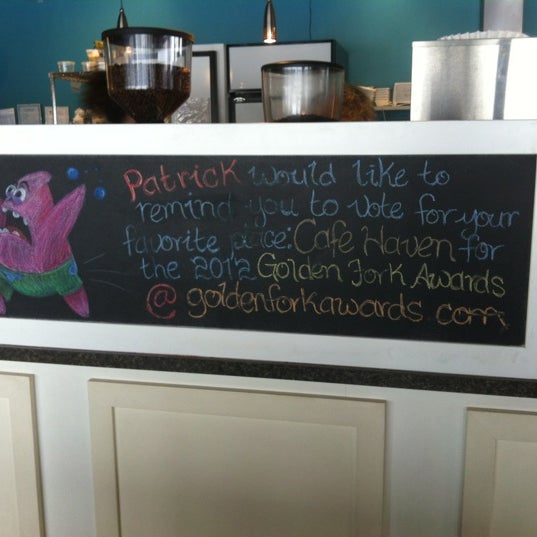 Patrick would like to
remind you to vote for your
favorite place: Café Haven for
the 2012 Golden Fork Awards
@ goldenforkawards.com